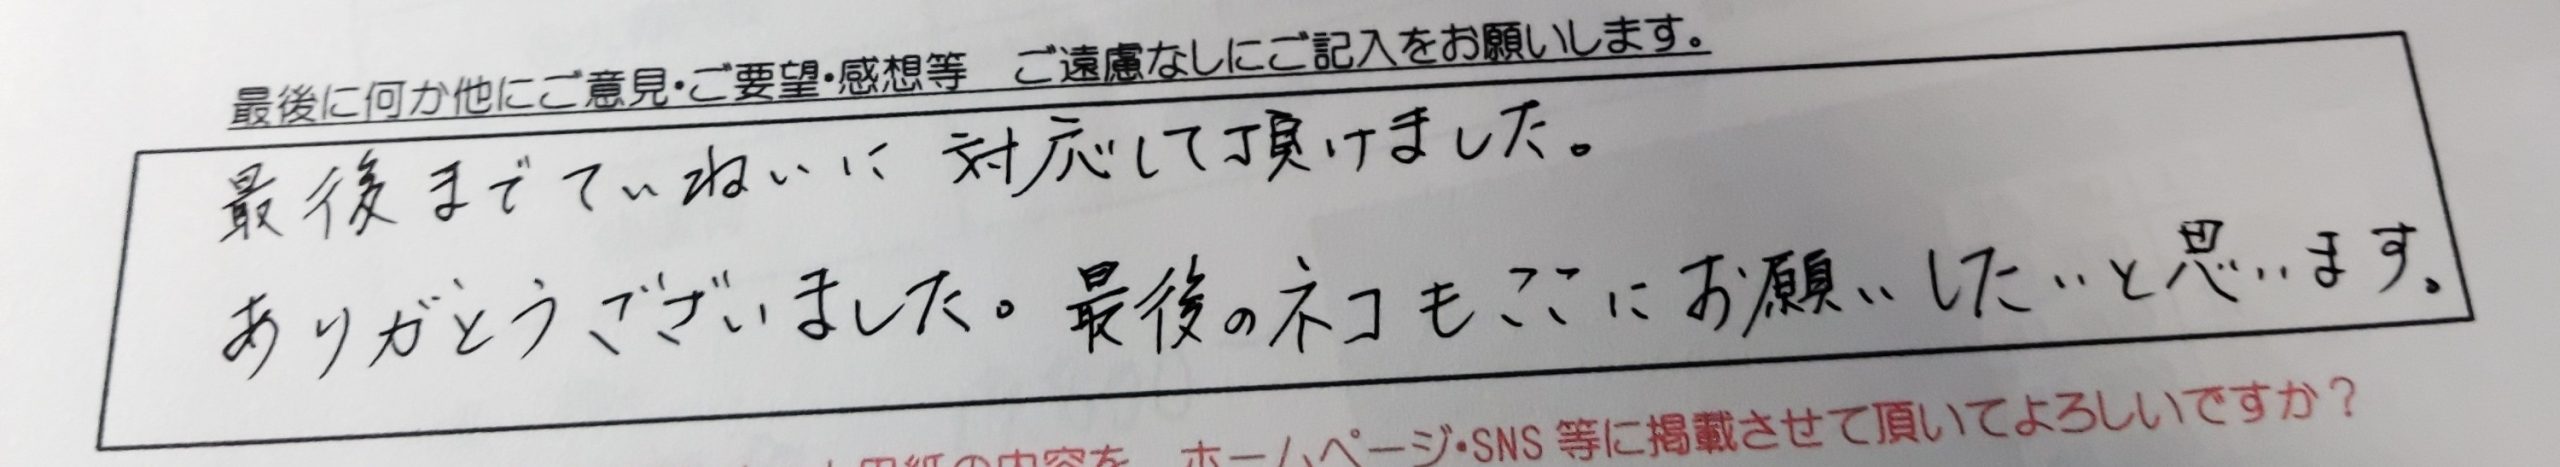 最後に何か他にご意見・ご要望・感想等　ご遠慮なしにご記入をお願いします。
最後までていねいに対応して頂けました。
ありがとうございました。最後のネコもここにお願いしたいと思います。
用紙の内容を、ホームページ・SNS等に掲載させて頂いてよろしいですか？